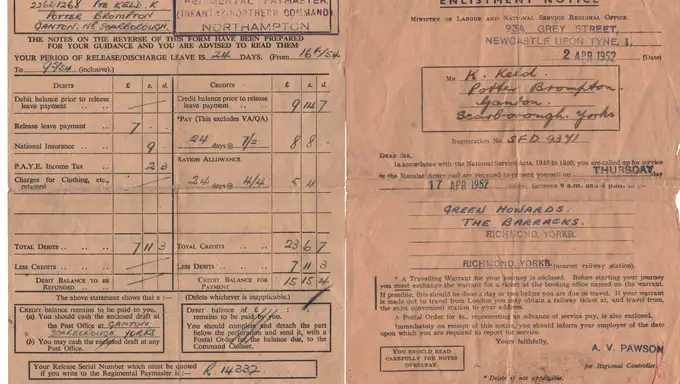 22661268 Pte KELD. K
POTTER BROMPTON
GANTON, NR SCARBOROUGH.
REGIMENTAL PAYMASTER
(INFANTRY-NORTHERN COMMAND)
NORTHAMPTON
THE NOTES ON THE REVERSE OF THIS FORM HAVE BEEN PREPARED
FOR YOUR GUIDANCE AND YOU ARE ADVISED TO READ THEM
YOUR PERIOD OF RELEASE/DISCHARGE LEAVE IS 24 DAYS. (From
To (inclusive).)
DEBITS £ s. d.
Debit balance prior to release
leave payment
Release leave payment 7 - -
National Insurance 9 -
P.A.Y.E. Income Tax 2 3
Charges for Clothing, etc.,
retained
TOTAL DEBITS 7 11 3
LESS CREDITS
DEBIT BALANCE TO BE
REFUNDED
CREDITS £ s. d.
Credit balance prior to release
leave payment 9 14 7
*PAY (This excludes VA/QA)
24 days @ 7/= 8 8 -
RATION ALLOWANCE
24 days @ 4/4 5 4
TOTAL CREDITS 23 6 7
LESS DEBITS 7 11 3
CREDIT BALANCE FOR
PAYMENT 15 15 4
The above statement shows that a :—
CREDIT balance remains to be paid to you.
(a) You should cash the enclosed draft at
the Post Office at GANTON
SCARBOROUGH YORKS
(b) You may cash the enclosed draft at any
Post Office.
(Delete whichever is inapplicable.)
DEBIT balance of £
remains to be paid by you.
You should complete and detach the part
below the perforation and send it, with a
Postal Order for the balance due, to the
Command Cashier.
Your Release Serial Number which must be quoted
if you write to the Regimental Paymaster is:— R 14332
ENLISTMENT NOTICE
MINISTRY OF LABOUR AND NATIONAL SERVICE REGIONAL OFFICE
93A GREY STREET,
NEWCASTLE UPON TYNE 1.
2 APR 1952 (Date)
MR. K. Keld.
Potter Brompton.
Ganton.
Scarborough. Yorks
Registration No. SFD 9371
DEAR SIR,
In accordance with the National Service Acts, 1948 to 1950, you are called up for service
in the Regular Army and are required to present yourself on THURSDAY day
17 APR 1952 (date), between 9 a.m. and 4 p.m. to :—
GREEN HOWARDS.
THE BARRACKS.
RICHMOND, YORKS.
RICHMOND, YORKS (nearest railway station).
* A Travelling Warrant for your journey is enclosed. Before starting your journey
you must exchange the warrant for a ticket at the booking office named on the warrant.
If possible, this should be done a day or two before you are due to travel. If your warrant
is made out to travel from London you may obtain a railway ticket at, and travel from,
the most convenient station to your address.
A Postal Order for 4s., representing an advance of service pay, is also enclosed.
Immediately on receipt of this notice, you should inform your employer of the date
upon which you are required to report for service.
Yours faithfully,
A. V. PAWSON
for Regional Controller.
YOU SHOULD READ
CAREFULLY THE NOTES
OVERLEAF.
* Delete if not applicable.